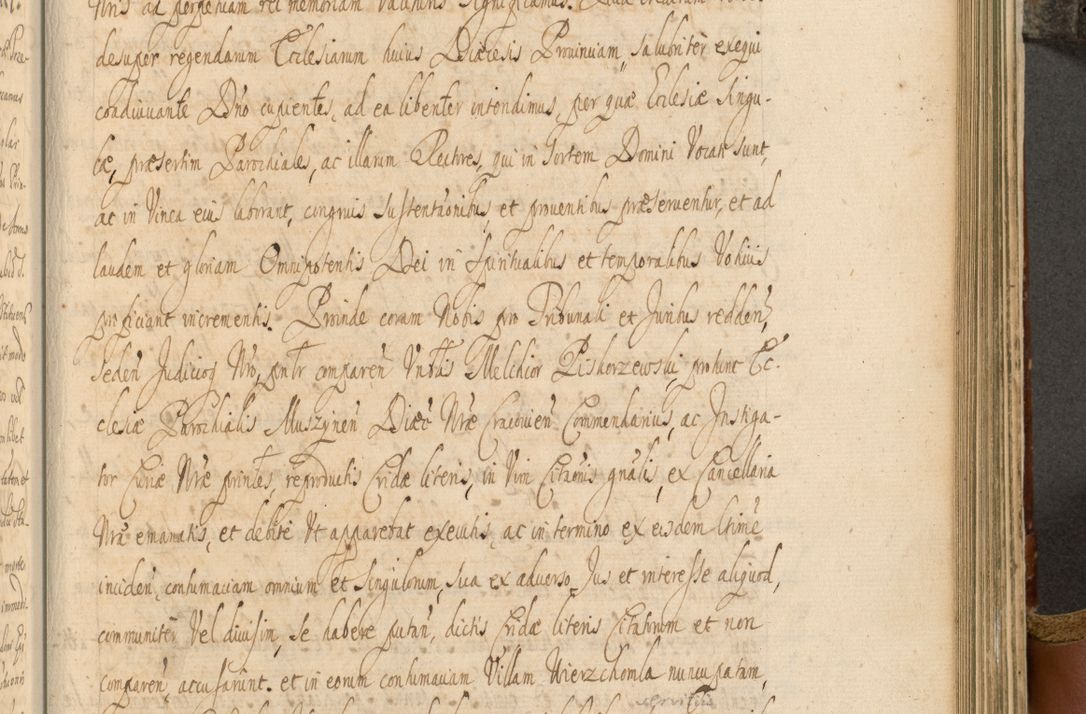 Nris ad perpetuam rei memoriam
desuper regendarum Ecclesiarum huius Diæcesis Prouinciam, salubriter exequi
coadiuuante Dno cupientes, ad ea libenter intendimus, per quæ Eclesiæ Singu-
læ, præsertim Parochiales, ac illarum Rectores, qui in Sortem Domini Vocati sunt,
ac in Vinea eius laborant, congruis sustentaonibus, et prouentibus præseruentur, et ad
laudem et gloriam Omnipotentis Dei in Spiritualibus et temporalibus Votiuis
proficiant incrementis. Proinde coram Nobis pro Tribunali et Juribus redden,
Seden Judicioq Nro, pntr comparen Vnblis Melchior Piskorzewski, pro tunc Ec-
clesiæ Parochialis Muszynen Diæc Nræ Cracouien Commendarius, ac Instiga-
tor Curiæ Nræ printes reproductis Cridæ literis, in Vim Citaonis gnalis, ex Cancellaria
Nra emanatis, et debite Vt apparebat executis, ac in termino ex eisdem ltime
inciden, contumaciam omnium et Singulorum, Sua ex aduerso Jus et interesse aliquod,
communiter Vel diuisim, Se habere putan, dictis Cridæ literis Citatorum et non
comparen, accusarunt. et in eorum contumaciam Villam Wierzchomla nuncupatam,